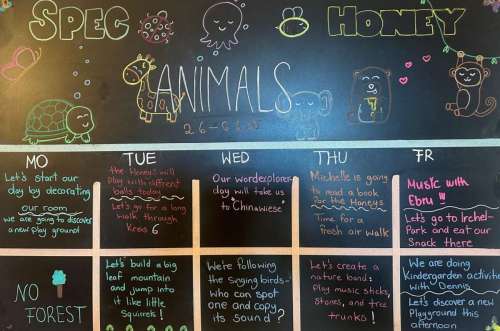 SPEC HONEY
ANIMALS
MO TUE WED THU FR
Let's start our
day by decorating
our room
we are going to discover
a new play ground
the Honeys will
play with different
balls today
Let's go for a long
walk through
Kreis 6
Our worderplorer-
day will take us
to "Chinawiese"
Michelle is going
to read a book
for the Honeys
Time for a
fresh air walk
Music with
Ebru !!!
Let's go to Irchel-
Park and eat our
Snack there
NO
FOREST
Let's build a big
leaf mountain
and jump into
it like little
Squirrels !
We're following
the singing birds-
who can spot
one and copy
its sound ?
Let's create a
nature band!
Play music sticks,
stones, and tree
trunks !
We are doing
Kindergarten activities
with Dennis
Let's discover a new
Playground this
afternoon